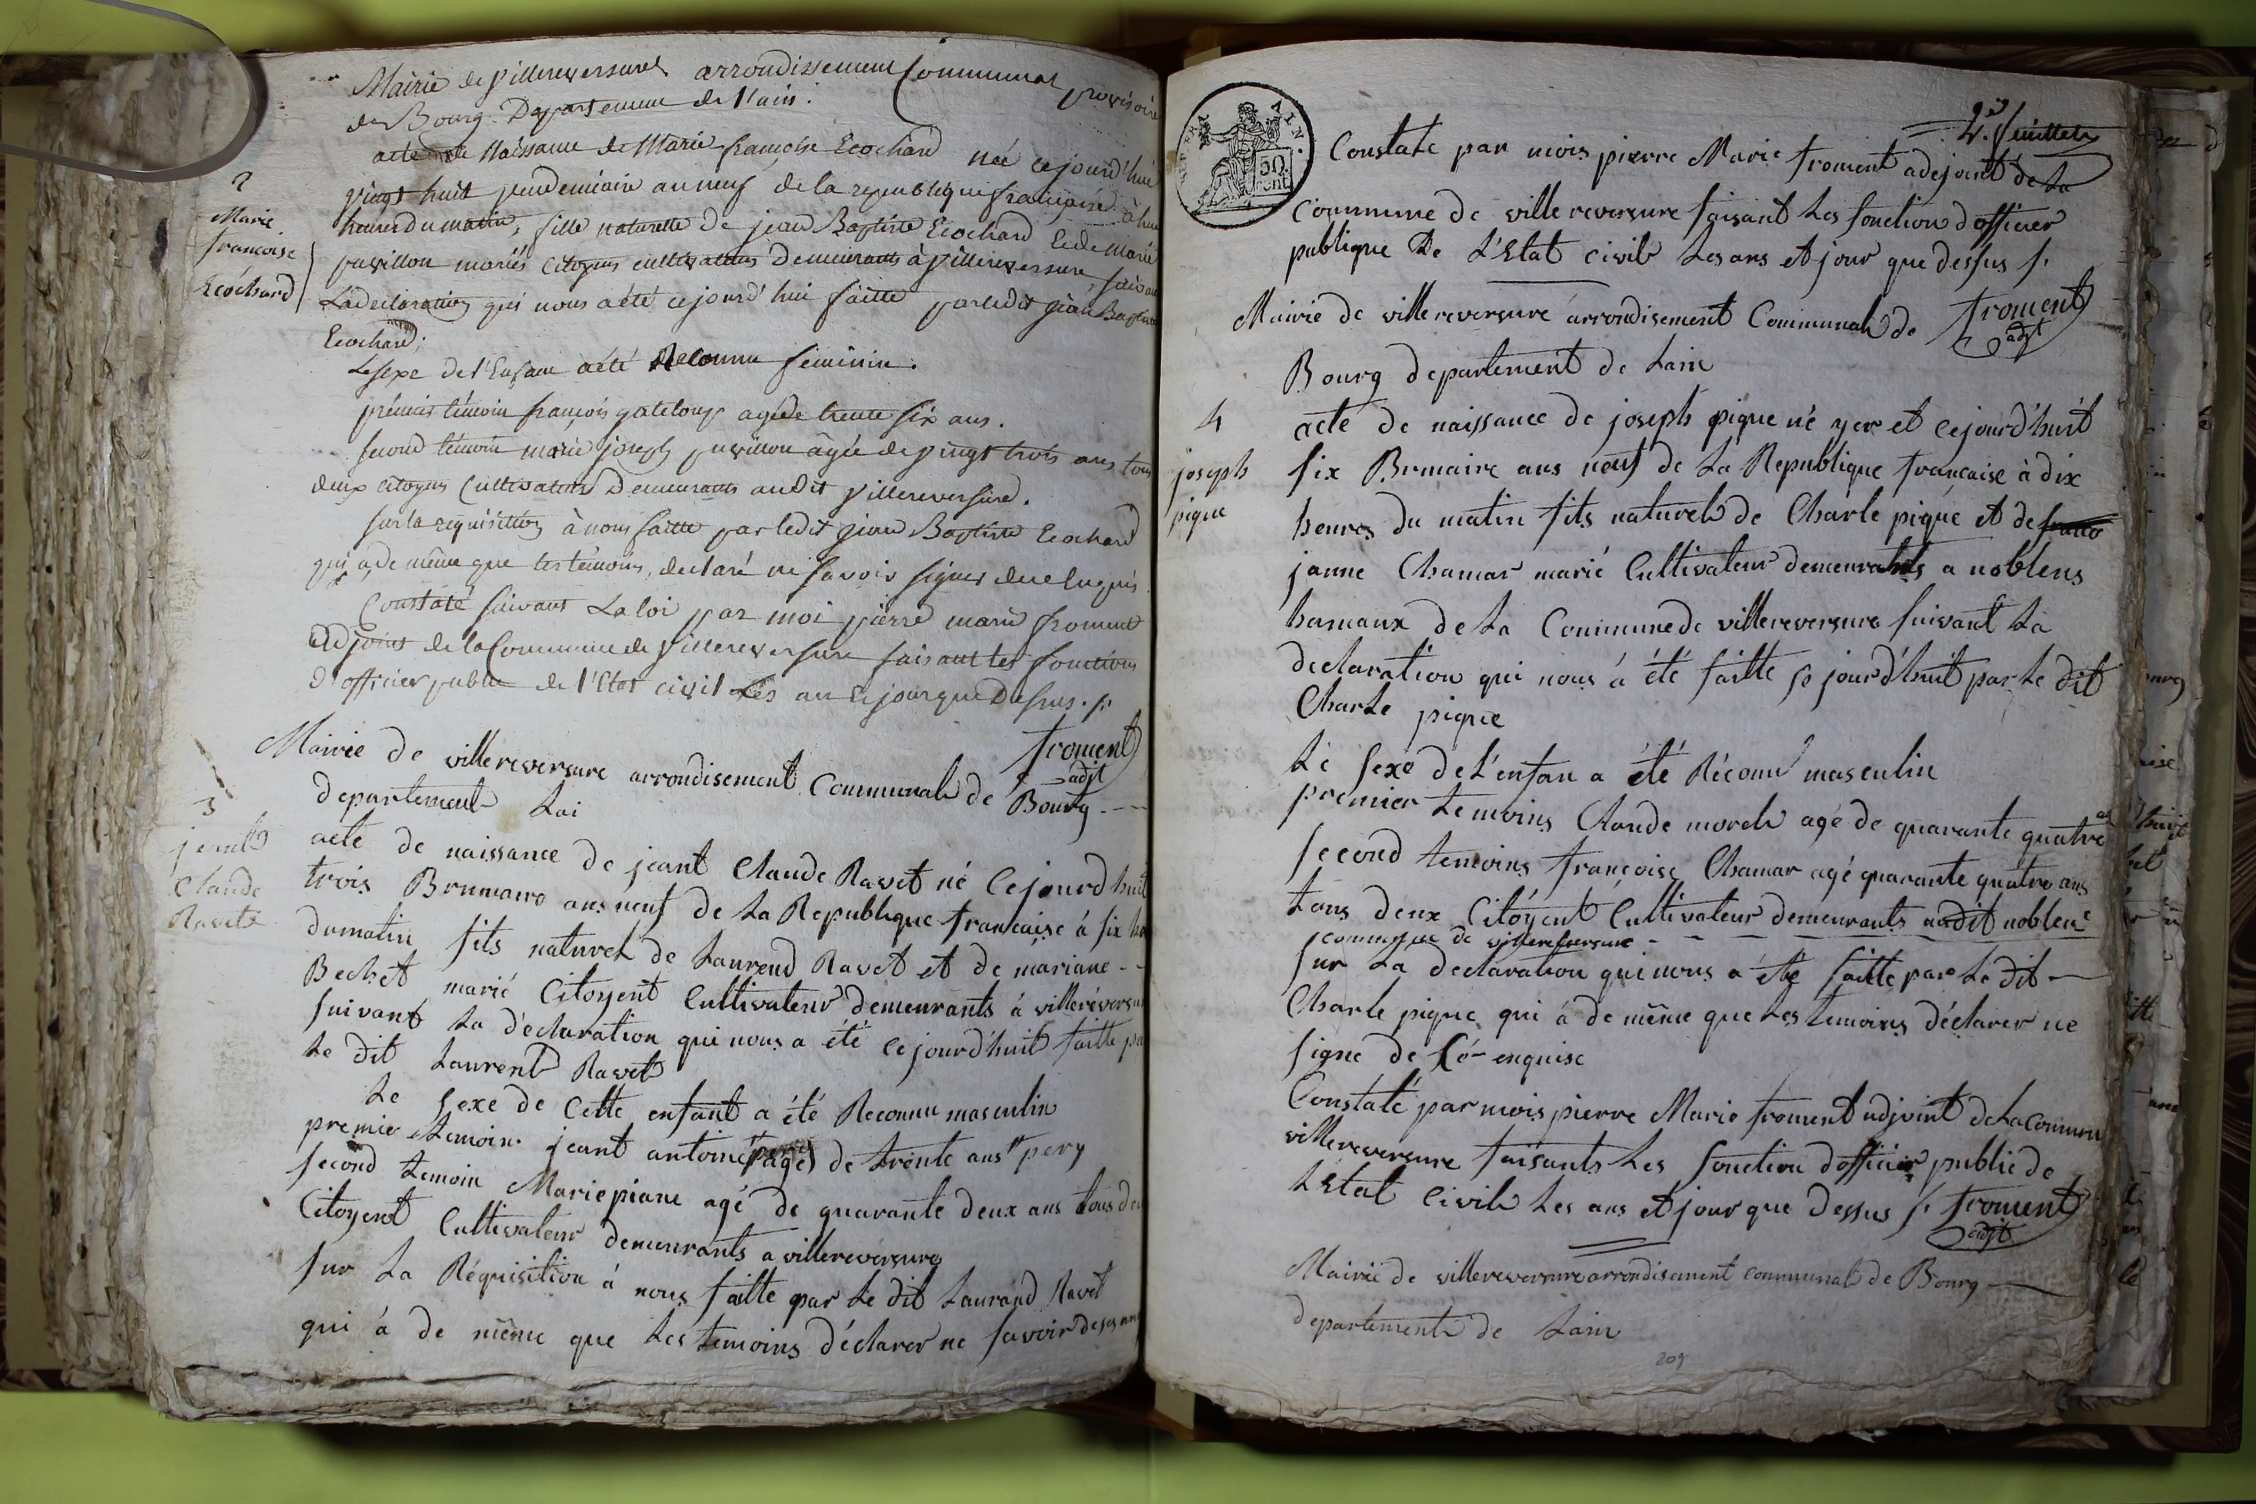 Mairie de Villereversure arrondissement Communal provisoire
de Bourg. Departement de l'ain.
acte de Naissance de Marie françoise Ecochard née cejourd'hui
2
Marie
françoise
Ecochard
vingt huit vendemiaire an neuf de la republique française à huit
heures du matin, fille naturelle de jean Baptiste Ecochard et de Marie
puvillon mariés Citoyens cultivateurs Demeurants à Villereversure, suivant
La declaration qui nous a été cejourd'hui faitte par ledit jean Baptiste
Ecochard;
Le sexe de l'Enfant a été Reconnu féminin.
prémier témoin françois agé de trente six ans.
second témoin marie joseph puvillon âgée de vingt trois ans, tous
deux citoyens Cultivateurs Demeurants audit Villereversure.
sur la requisition à nous faitte par ledit jean Baptiste Ecochard
qui a, de même que les témoins, declaré ne savoir signer de ce Enquis
Constaté suivant La loi par moi pierre marie froment
adjoint de la Commune de Villereversure faisant les fonctions
d'officier public de l'Etat civil Les an et jour que Dessus. /.
froment
adjt
Mairie de villereversure arrondisement Communal de Bourg
departement Lai
3
jeant
Claude
Ravet
acte de naissance de jeant Claude Ravet né Cejourdhuit
trois Brumaire ans neuf de La Republique francaise à six
dumatin fils naturel de Laurend Ravet et de mariane
Bechet marié Citoyent Cultivateur demeurants à villereversure
suivant La déclaration qui nous a été cejourd'huit faitte
Le dit Laurent Ravet
Le sexe de Cette enfant a été Reconnu masculin
premie temoin jeant antoine agé de trente ans pery
second temoin Marie piane agé de quarante deux ans tous
Citoyent Cultivateur demeurants a villereversure
sur La Réquisition à nous faitte par Le dit Laurand Ravet
qui à de même que Les temoins déclarer ne savoir
2e feuillet
AIN.
50
cent
Constate par mois pierre Marie froment adejoint de La
Commune de villereversure faisant Les fonction dofficier
publique De L'Etat Civil Les ans et jour que dessus /.
froment
adjt
Mairie de villereversure arrondisement Communal de
Bourg departement de Lain
4
joseph
pique
acte de naissance de joseph pique né yer et Cejourd'huit
six Brmaire ans neuf de La Republique francaise à dix
heures du matin fils naturel de Charle piqué et de
janne Chamar marié Cultivateur demeurants a noblens
hamaux de La Commune de villereversure suivant La
declaration qui nous à été faitte se jourd'huit par Le dit
Charle pique
Le sexe de L'enfan a été Réconu masculin
premier temoins Claude morel agé de quarante quatre
second temoins françoise Chamar agé quarante quatre ans
tous deux Citoyent Cultivateur demeurants audit noblens
commune de villereversure
sur La declaration qui nous a été faitte par Le dit
Charle pique qui à de même que Les temoins déclarer ne
signe de Cé enquise
Constaté par mois pierre Marie froment adjoint de La Commun
villereversure faisants Les fonction dofficier public de
L'Etat Civil Les ans et jour que dessus /. froment
adjt
Mairie de villereversure arrondisement communal de Bourg
departement de Lain
209